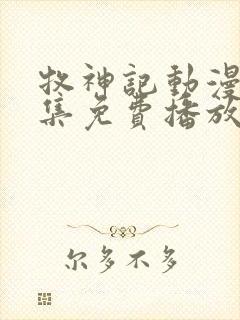 牧神記動漫
集免費播放
尔多不多